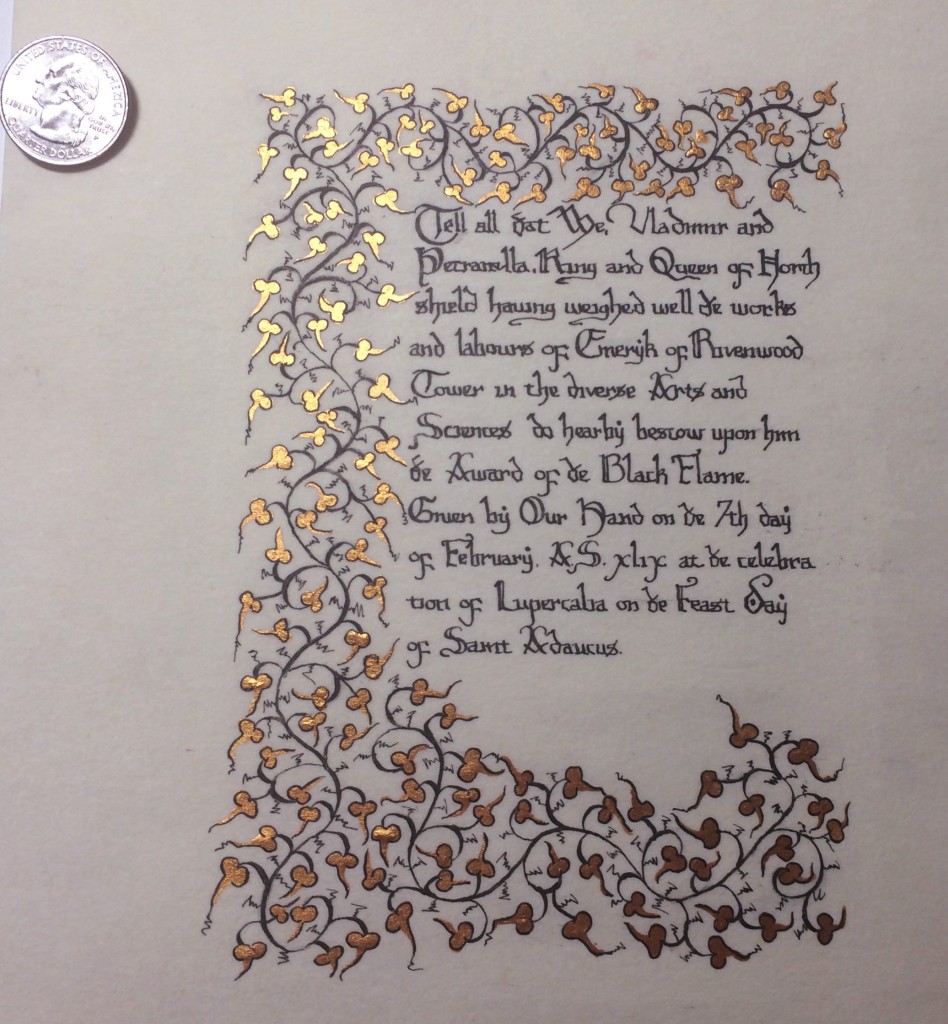 UNITED STATES OF AMERICA
LIBERTY
IN GOD WE TRUST
QUARTER DOLLAR
Tell all ðat We, Vladimir and
Petranilla, King and Queen of North
shield having weighed well ðe works
and labours of Emerijk of Rivenwood
Tower in the diverse Arts and
Sciences do hearbij bestow upon him
ðe Award of ðe Black Flame.
Given bij Our Hand on ðe 7th daij
of Februarij, A.S. xlix at ðe celebra
tion of Lupercalia on ðe Feast Daij
of Saint Adaucus.